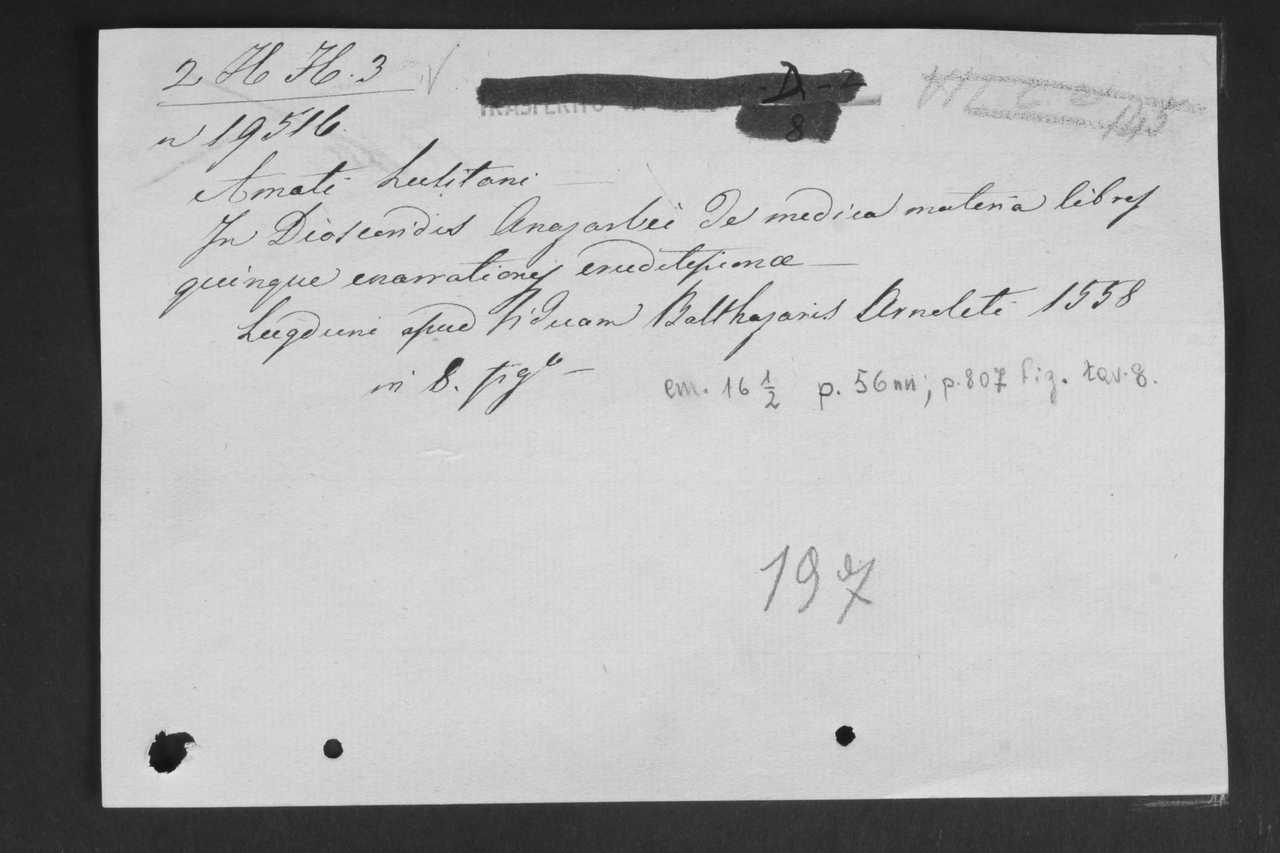 2 H H. 3 √
TRASFERITO
A-2
8
145
n 19516.
Amati Lusitani —
In Dioscoridis Anazarbei de medica materia libros
quinque enarrationes eruditissimæ —
Lugduni apud Viduam Balthazaris Arnoleti 1558
in 8. figto —
cm. 16 1/2 p. 56nn; p. 807 fig. tav. 8.
197